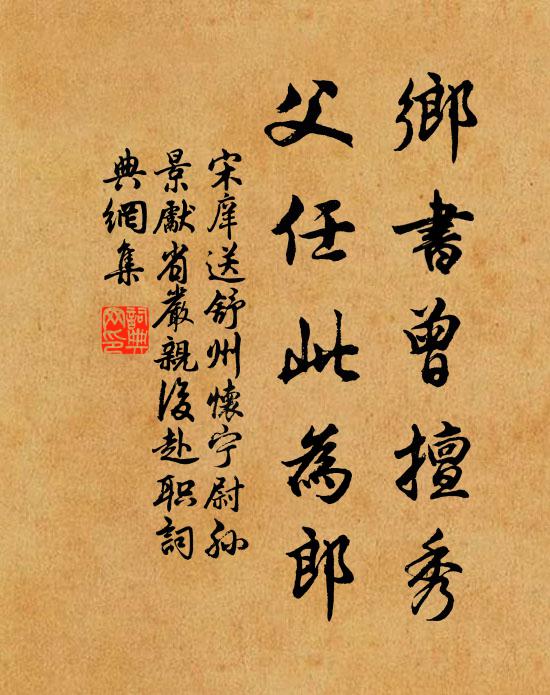 鄉書曾擅秀
父任此為郎
宋庠送舒州懷宁尉孙
景獻省嚴親後赴职詞
典網集
詞典
网印